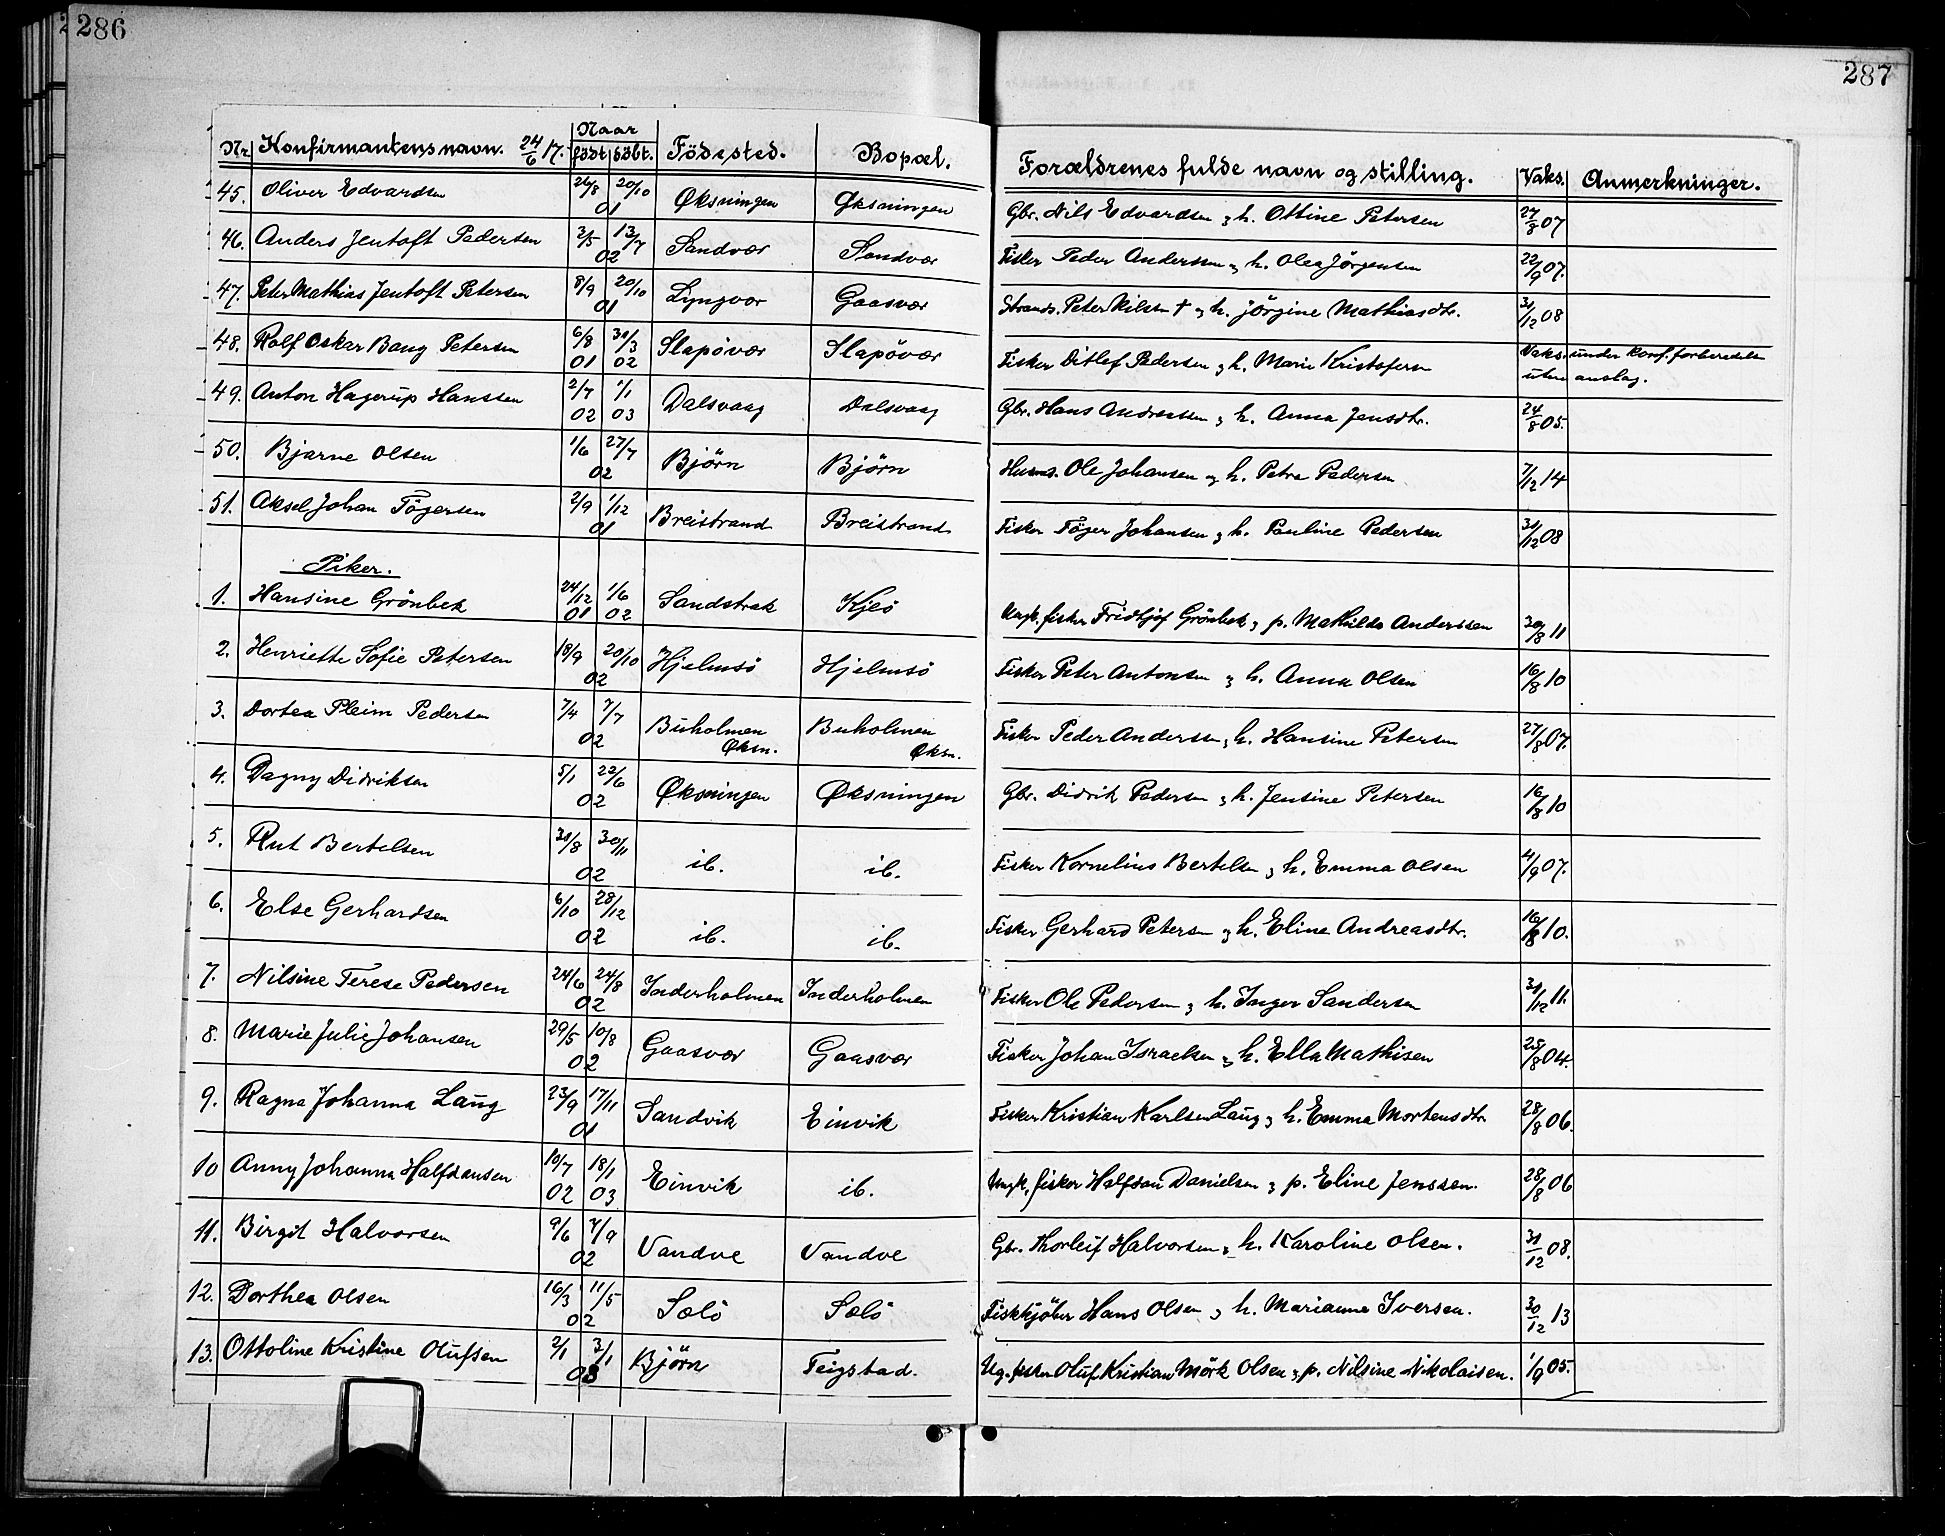 286
287
Nr. Konfirmantens navn. 24/6 17. Naar født døbt. Födested. Bopæl. Forældrenes fulde navn og stilling. Vaks. Anmerkninger.
45. Oliver Edvardsen 26/8 20/10 01 Øksningen Øksningen Gbr. Nils Edvardsen og h. Ottine Petersen 27/8 07
46. Anders Jentoft Pedersen 2/5 13/7 02 Sandvær Sandvær Fisker Peder Anderssen og h. Olea Jörgensen 22/9 07.
47. Peter Mathias Jentoft Petersen 8/9 20/10 01 Lyngvær Gaasvær Strands. Peter Nilsen † og h. Jörgine Mathiasdtr. 31/12 08
48. Rolf Oskar Bang Petersen 6/8 01 31/3 02 Slapövær Slapövær Fisker Ditlef Pedersen og h. Marie Kristofersen Vaks. under konf. forberedelse
uten anslag.
49. Anton Hagerup Hanssen 2/7 02 1/1 03 Dalsvaag Dalsvaag Gbr. Hans Andreassen og h. Anna Jensdtr. 24/8 05.
50. Bjarne Olsen 1/6 27/7 02 Björn Björn Husm. Ole Johansen og h. Petra Pedersen 7/12 14
51. Aksel Johan Tögersen 2/9 1/12 01 Breistrand Breistrand Fisker Töger Johansen og h. Pauline Pedersen 31/12 08
Piker.
1. Hansine Grönbek 24/12 01 1/6 02 Sandstrak Kjeö Ungk. fisker Fridtjof Grönbek og p. Mathilde Anderssen 30/8 11
2. Henriette Sofie Petersen 18/9 20/10 02 Hjelmsö Hjelmsö Fisker Peter Antonsen og h. Anna Olsen 16/8 10
3. Dortea Pleim Pedersen 7/4 7/7 02 Buholmen Buholmen Fisker Peder Anderssen og h. Hansine Petersen 27/8 07.
Øksn. Øksn.
4. Dagny Didriksen 5/1 22/6 02 Øksningen Øksningen Gbr. Didrik Pedersen og h. Jensine Petersen 16/8 10
5. Rut Bertelsen 31/8 30/11 02 ib. ib. Fisker Kornelius Bertelsen og h. Emma Olsen 4/9 07.
6. Else Gerhardsen 6/10 28/12 02 ib. ib. Fisker Gerhard Petersen og h. Eline Andreasdtr. 16/8 10.
7. Nilsine Terese Pedersen 24/6 24/8 02 Inderholmen Inderholmen Fisker Ole Pedersen og h. Inger Sandersen 31/12 11.
8. Marie Julie Johansen 29/5 10/8 02 Gaasvær Gaasvær Fisker Johan Israelsen og h. Ella Mathisen 25/8 04.
9. Ragna Johanna Laug 23/9 17/11 01 Sandvik Einvik Fisker Kristian Karlsen Laug og h. Emma Mortensdtr. 28/8 06.
10 Anny Johanna Halfdansen 10/7 02 18/1 03 Einvik ib. Ungk. fisker Halfdan Danielsen og p. Eline Jenssen. 28/8 06
11. Birgit Halvorsen 9/6 7/9 02 Vandve Vandve Gbr. Thorleif Halvorsen og h. Karoline Olsen. 31/12 08.
12. Dorthea Olsen 16/3 11/5 02 Sælö Sælö Fiskkjöber Hans Olsen og h. Marianne Iversen. 30/12 13
13. Ottoline Kristine Olufsen 2/1 3/1 03 Björn Teigstad. Ug. fisker Oluf Kristian Mörk Olsen og p. Nilsine Nikolaisen. 1/9 05.